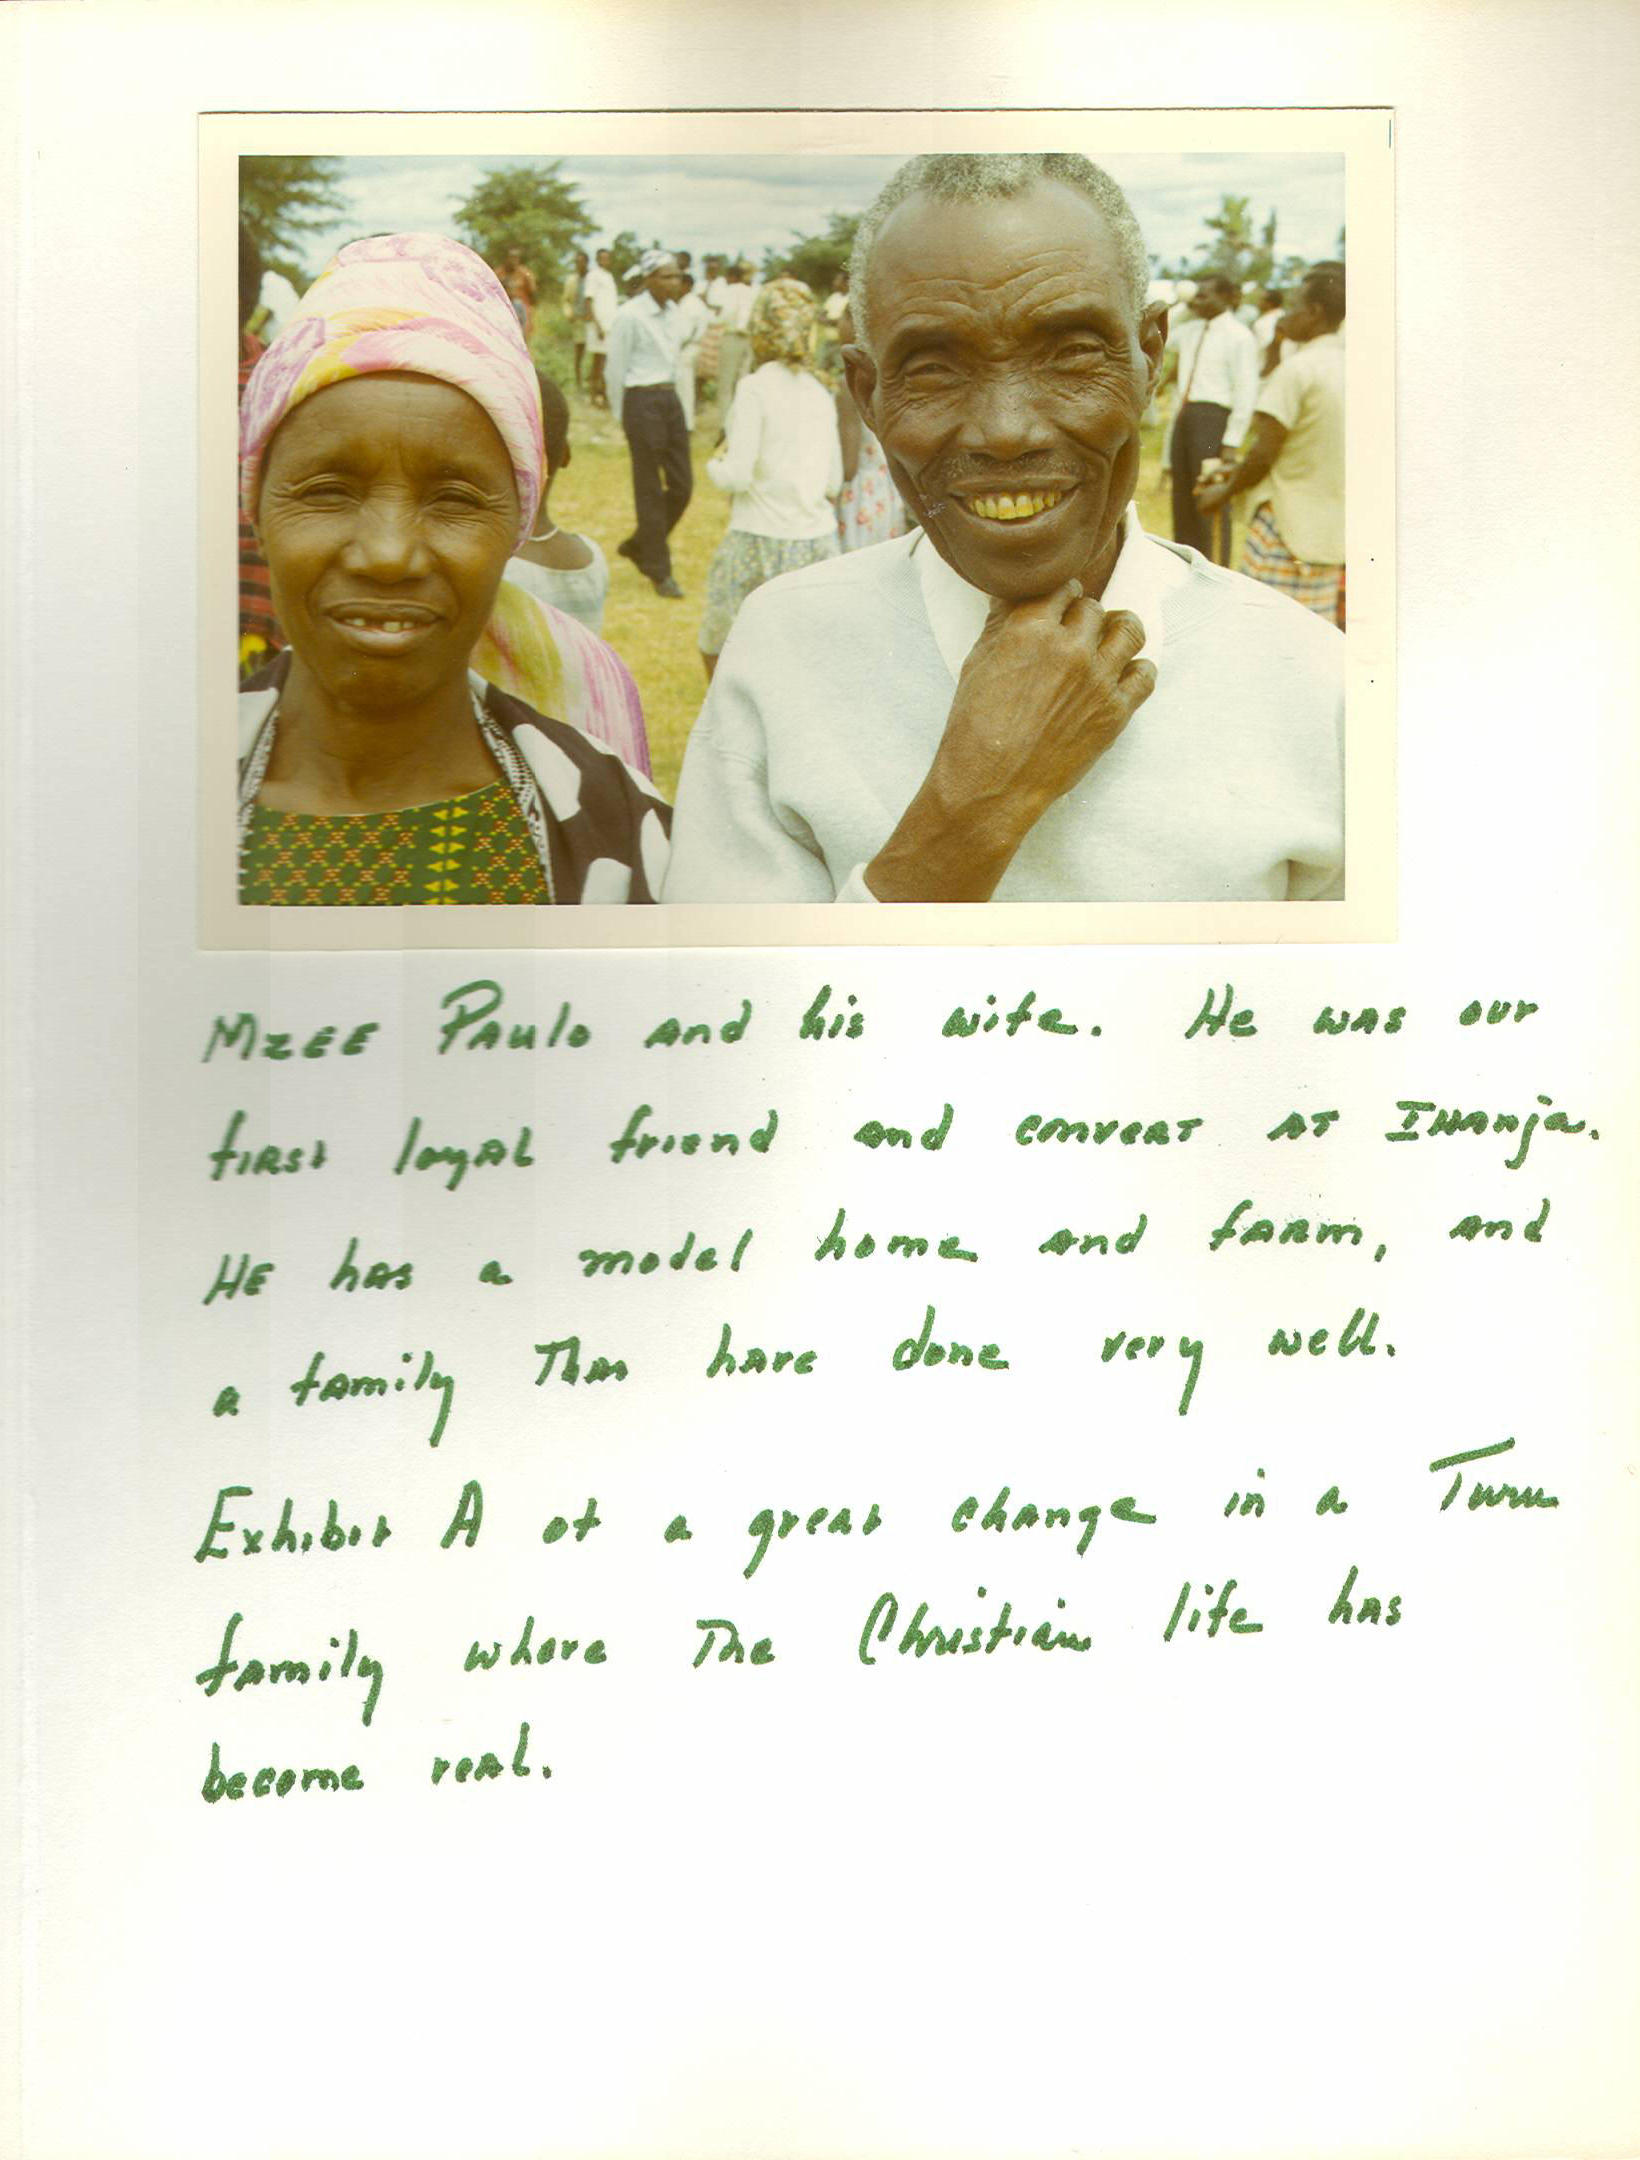 Mzee Paulo and his wife. He was our
first loyal friend and convert at Ihanja.
He has a model home and farm, and
a family that have done very well.
Exhibit A of a great change in a Turu
family where the Christian life has
become real.